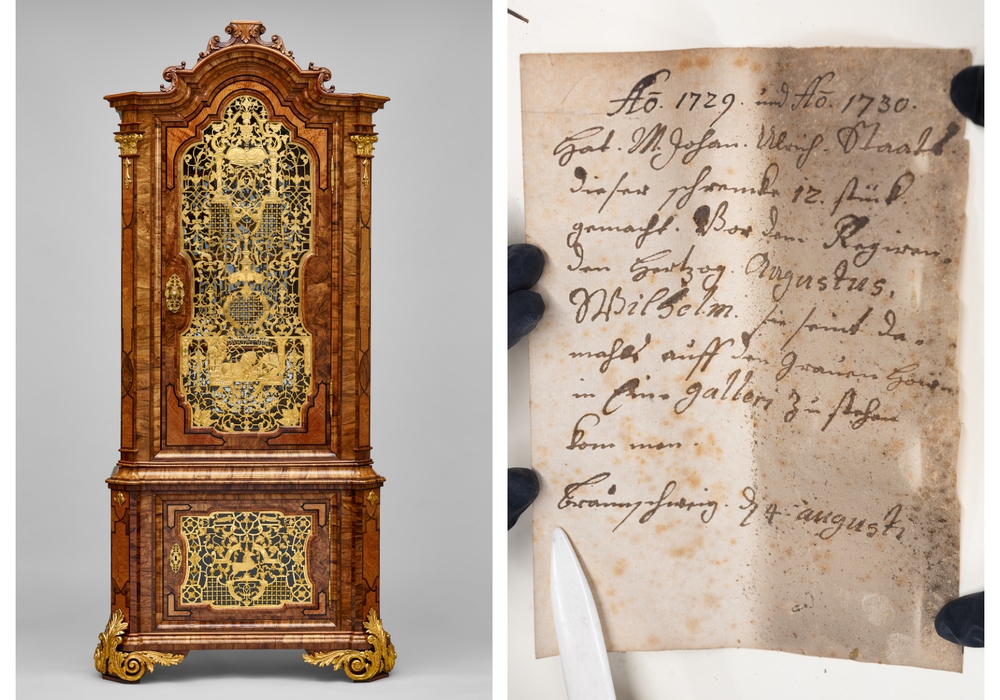 Aō. 1729. und Aō. 1730.
Hat. M. Johan. Ulrich. Staats.
dieser schrencke 12. stück
gemacht. Vor den. Regiren-
den Hertzog. Augustus,
Wilhelm. sie seint da-
mahls auff den Grauen Hoven
in Eine galleri zu stehen
kom men.
Braunschweig. d 4 augusti